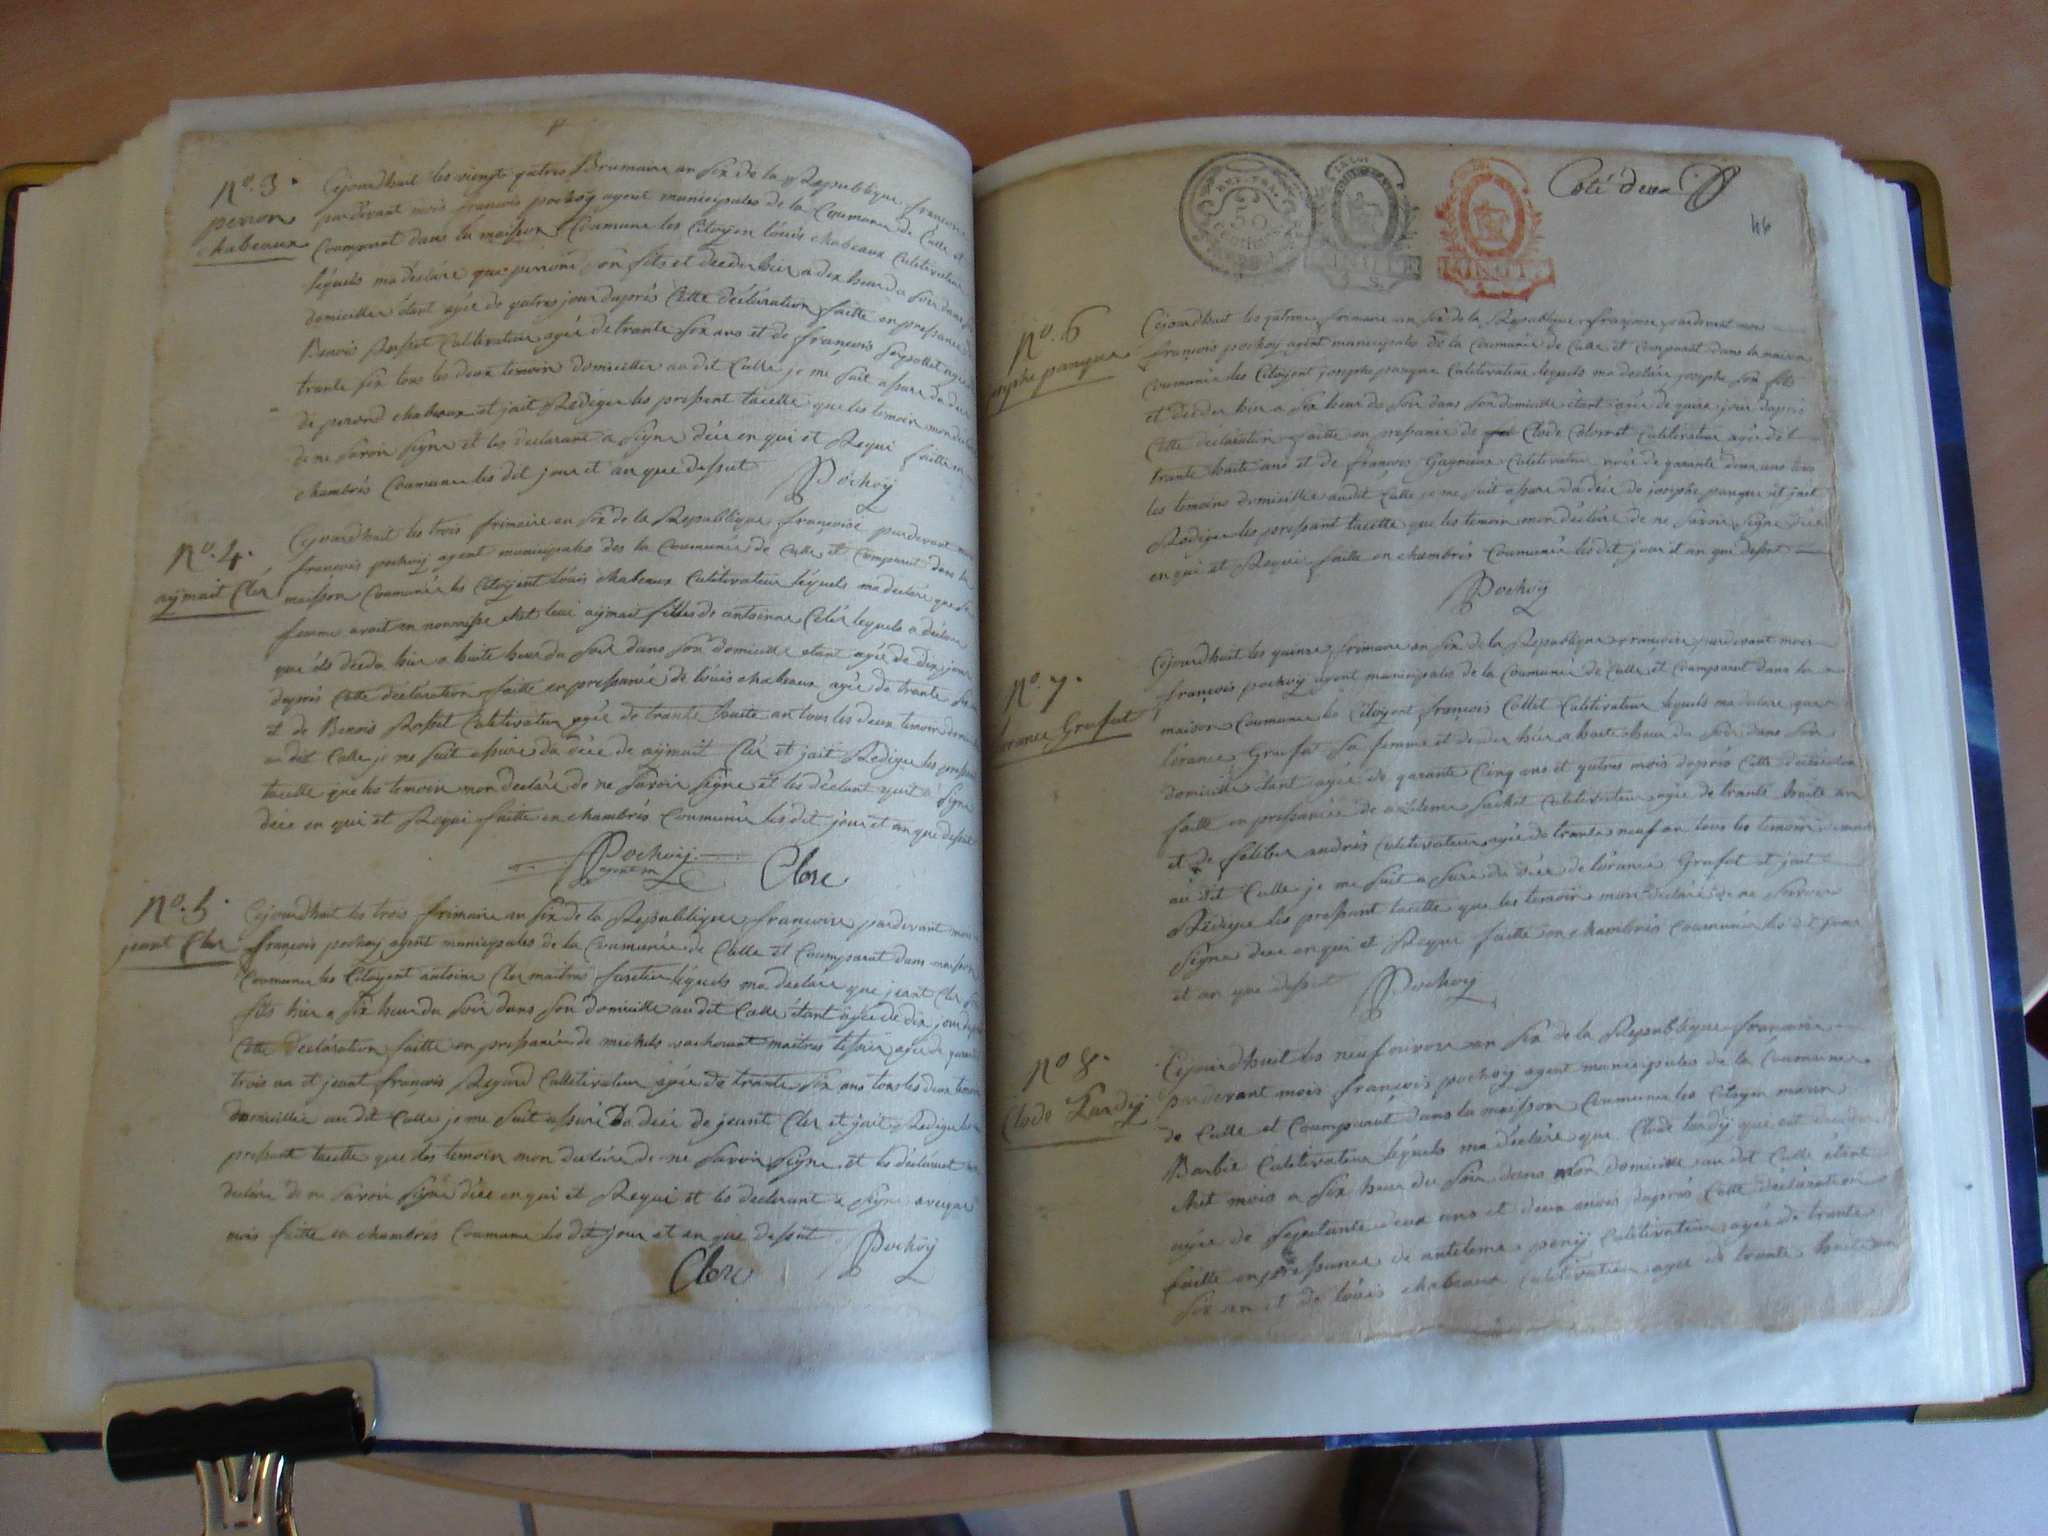 N.o 3.
perron
chabeaux
Cejourdhuit les viengt quatres Brumaire an six de la Republique francoise
pardevant mois francois pochoÿ agent municipales de la Coumune de Culle et
Comparut dans la maisson Coumune les Citoyen louis chabeaux Cultivateur
lequels ma déclaré que perron son fils et deceder hier a dix heur du soir dans son
domicille étant agée de quatres jour daprès Cette déclaration faitte en pressance de
Benois Rosset Cultivateur agée de trante six ans et de françois
trante six tous les deux temoin domicillier au dit Culle je me suit assure du déce
de perond chabeaux et jait Rediger les pressent tacette que les temoin mon declare
de ne savoir signe et les declarant a signe déce en qui et Requi faitte en
chambrés Coumune les dit jour et an que dessut
Pochoÿ
N.o 4.
aÿmait Cler
Cejourdhuit les trois frimaire an six de la Republique françoise pardevant mois
francois pochoÿ agent municipales de la Coumune de Culle et Comparut dans la
maisson Coumune les Citoyent louis chabeaux Cultivateur lequels ma declaré que sa
femme avoit en nourrisse chet leui aÿmait filles de antoinne Cler lequels a declare
que és deceda hier a huite heur du soir dans son domicille etant agée de dix jour
daprés Cette declaration faitte en pressance de louis chabeaux agée de trante six
et de Benois Rosset Cultivateur agée de trante huite an tous les deux temoin
au dit Culle je me suit assure du déce de aÿmait Cler et jait Rediger les pressent
tacette que les temoin mon declaré de ne savoir signe et les déclarant
déce en qui et Requi faitte en chambrés Coumune les dit jour et an que dessut
Pochoÿ
agent m
Clerc
N.o 5.
jeant Cler
Cejourdhuit les trois frimaire an six de la Republique françoise pardevant mois
françois pochoÿ agent municipales de la Coumunée de Culle et Coumparut dans maisson
Coumune les Citoyent antoine Cler maitres lequels ma declaré que jeant Cler
fils hier a six heur du soir dans son domicille au dit Culle étant agée de dix jour daprès
Cette déclaration faitte en pressance de michels maitres tissier agée de garante
trois an et jeant françois Regard Cultivateur agée de trante six ans tous les deux temoin
domicillier au dit Culle je me suit assuré du déce de jeant Cler et jait Rediger les
pressent tacette que les temoin mon declare de ne savoir signe et les déclarant
declare de ne savoir signe déce en qui et Requi et les declarant a signe avecque
mois faitte en chambrés Coumune les dit jour et an que dessut
Pochoÿ
Clerc
Coté deux
46
50
CENTIMES
LA LOI
N.o 6
josephe panque
Cejourdhuit les quatre frimaire an six de la Republique françoise pardevant mois
françois pochoÿ agent municipales de la Coumunée de Culle et Comparut dans la maison
Coumunée les Citoyent josephe panque Cultivateur lequels ma declaré josephe son fils
et deceder hier a six heur du soir dans son domicille étant agée de jour daprés
Cette déclaration faitte en pressance de Clode Cultivateur agée de
trante huite ans et de françois Cultivateur agée de garante deux ans tous
les temoins domicillier au dit Culle je me suit assure du déce de josephe panque et jait
Rediger les pressant tacette que les temoin mon déclare de ne savoir signe déce
en qui et Requi faitte en chambrés Coumunée les dit jour et an que dessut
Pochoÿ
N.o 7.
lorance Grufat
Cejourdhuit les quinze frimaire an six de la Republique francoise pardevant mois
françois pochoÿ agent municipales de la Coumunée de Culle et Coumparut dans la
maison Coumunée les Citoyent françois Collet Cultivateur lequels ma declare que
lorance Grufat sa femme et deceder hier a huite heur du soir dans son
domicille etant agée de garante Cinq ans et quatres mois daprés Cette declaration
faitte en pressance de antelme Cultivateur agée de trante huite an
et de féliber andrés Cultivateur agée de trante neuf an tous les temoin
au dit Culle je me suit assure du déce de lorance Grufat et jait
Rediger les pressant tacette que les temoin mon declaré de ne savoir
signe déce en qui et Requi faitte en chambrés Coumune les dit jour
et an que dessut
Pochoÿ
N.o 8.
Clode Tardÿ
Cejourdhuit les neuf nivose an six de la Republique francoise
pardevant mois françois pochoÿ agent municipales de la Coumune
de Culle et Coumparut dans la maisson Coumune les Citoyen
Barbié Cultivateur lequels ma déclaré que Clode tardÿ que est deceder
chet mois a six heur du soir dans mon domicille au dit Culle étant
agée de septante deux ans et deux mois daprés Cette déclaration
faitte en pressance de antelme Cultivateur agée de trante
six an et de louis chabeaux Cultivateur agée de trante huite an